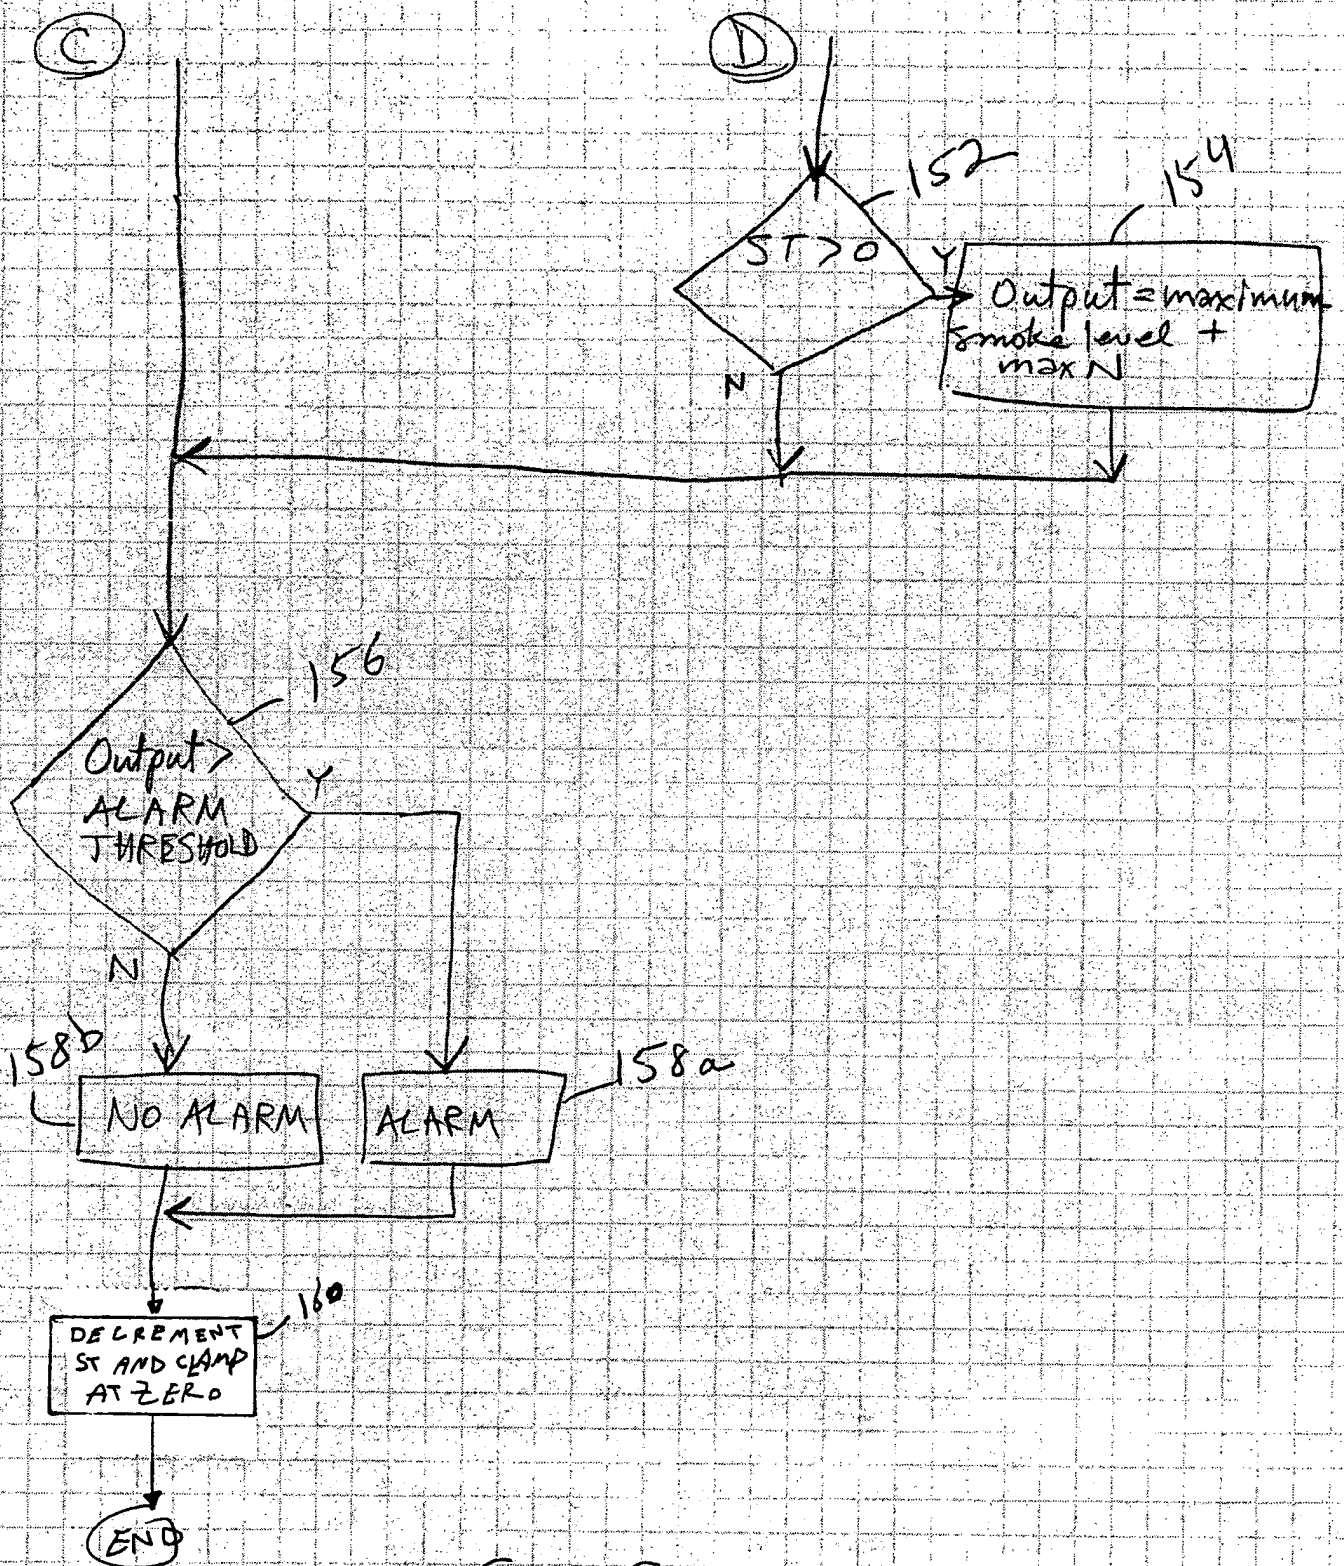 C
D
152
154
ST > 0
Y
Output = maximum
smoke level +
max N
N
156
Output >
ALARM
THRESHOLD
Y
N
158b
158a
NO ALARM
ALARM
160
DECREMENT
ST AND CLAMP
AT ZERO
END